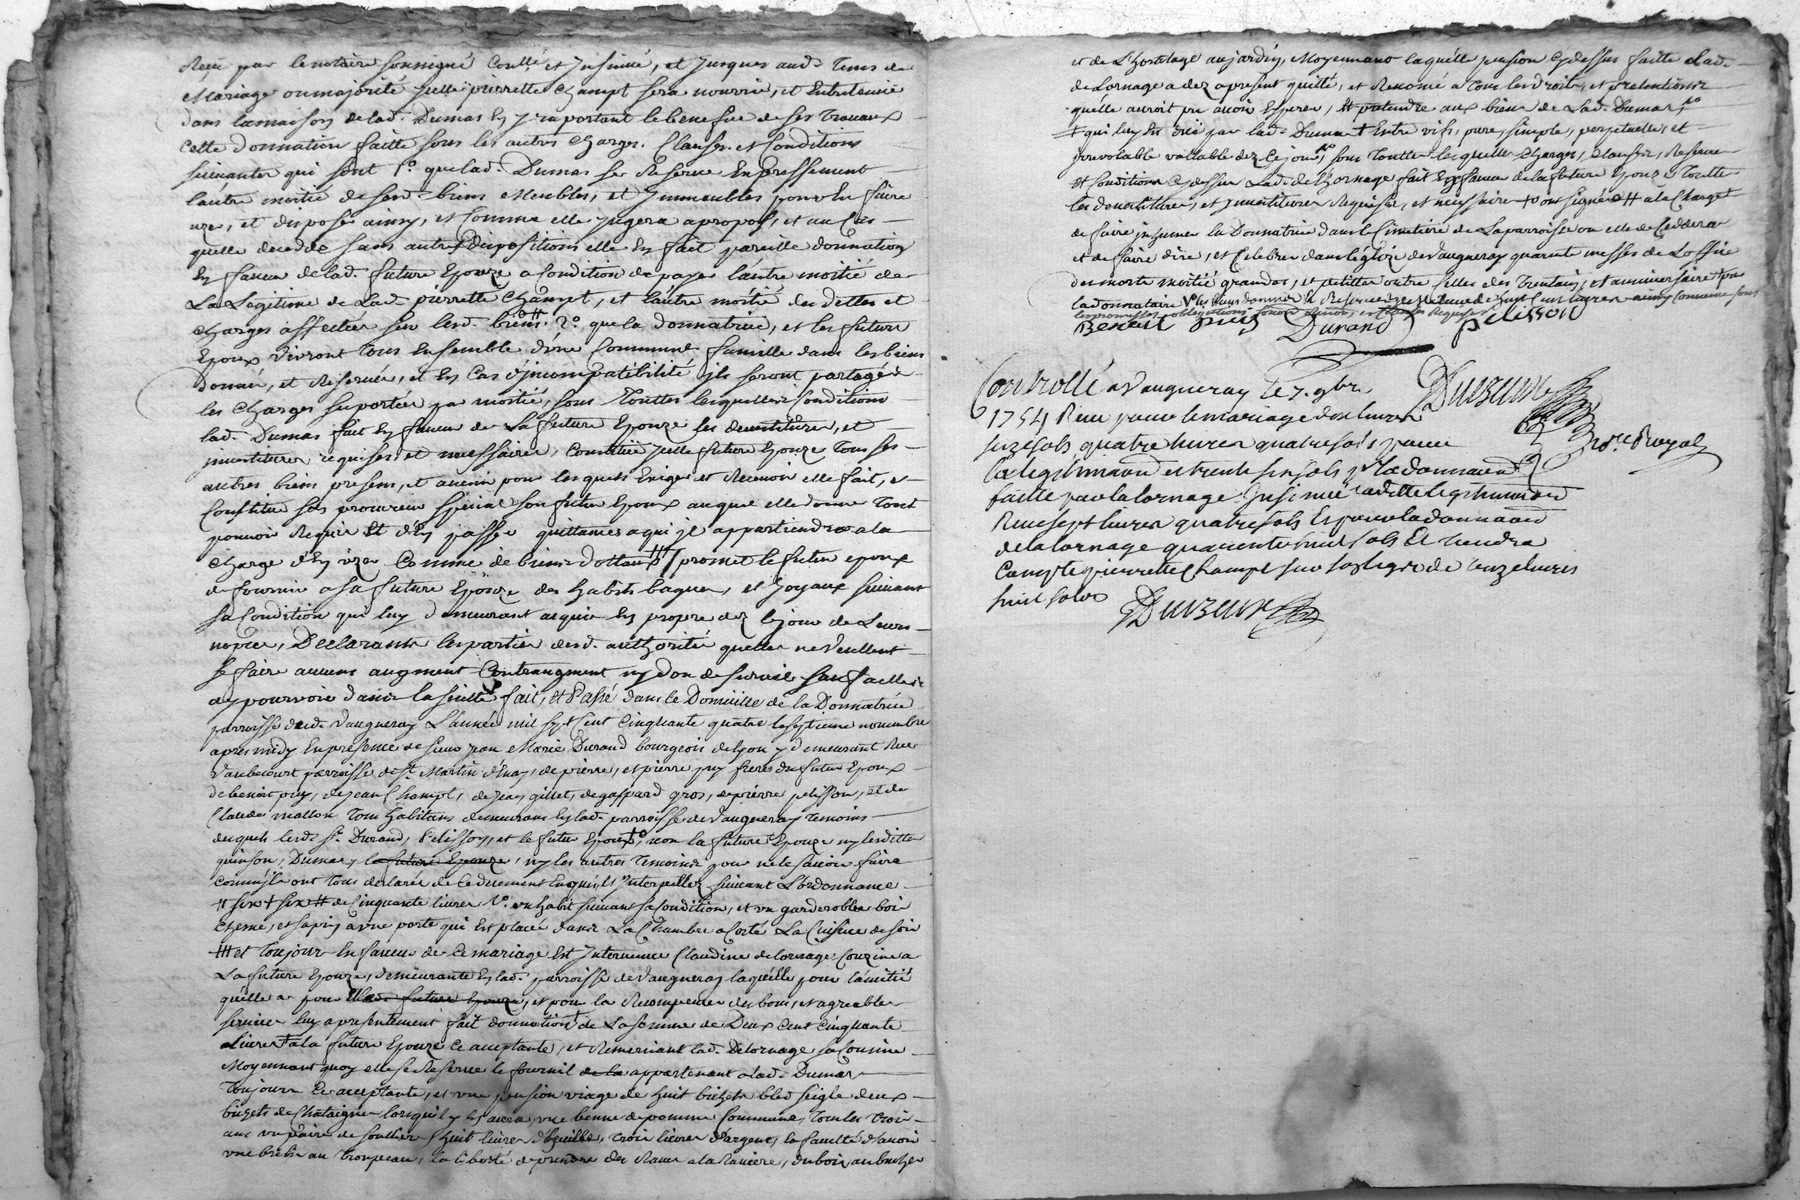 Reçu par le notaire soussigné Conllé et Insinué, et Jusques aud. Tems de
Mariage ou majorité Icelle pierrette Champt sera nourrie, et Entretenüe
dans la maison de lad. Dumas En y raportant le benefice de ses Travaux
Cette donnation faitte sous les autres Charges, Clauses et Conditions
suivantes qui sont 1º que lad. Dumas se Reserve Expressement
l'autre moitié de sesd. biens Meubles, et Immeubles pour En faire
uze, et disposé ainsy, et Comme elle Jugera apropos, et au Cas
quelle decedde sans autres dispositions elle En fait pareille donnation
En faveur de lad. future Epouze a Condition de payer l'autre moitié de
La Legitime de Lad. pierrette Champt, et l'autre moitié des dettes et
charges affectées sur lesd. biens 2º que la donnatrice, et les futurs
Epoux vivront tous Ensemble d'une Commune famille dans les biens
donnés, et Reservés, et En Cas d'jncompatibilité jls seront partagés
les Charges suportées par moitié, sous Touttes lesquelles Conditions
lad. Dumas fait En faveur de La future Epouze les devestitures, et
jnvestitures requises et necessaires, Constitüe Icelle future Epouze Tous ses
autres biens presens, et avenir pour lesquels Exiger et Recevoir elle fait, et
Constitüe son procureur special son futur Epoux auquel elle donne Tout
pouvoir Requis Et d'En passer quittances a qui jl appartiendra a la
charge d'En uzer Comme de biens dottaux promet le futur epoux
de fournir a sa future Epouze des habits bagues, et Joyaux suivant
sa Condition qui luy demeurant acquis En propre dez le jour de Leurs
nopces, Declarants les parties desd. authorité quelles ne veullent
se faire aucuns augment Contreaugment ny don de survie sauf a elles
a y pourvoir dans la suitte fait, et Passé dans le Domicille de la Donnatrice
parroisse dud. Vaugneray L'année mil sept Cent Cinquante quatre le septieme novembre
apres midy En presence de sieur jean Marie Durand bourgeois de Lyon y demeurant Rue
Vaubecourt parroisse de St Martin d'Enay, de pierre, et pierre puy freres du futur Epoux
de benoit puy, de jean Champt, de jean gillet, de gaspard gros, de pierre pelisson, et de
Claude mallon Tous habitans demeurans En lad. parroisse de Vaugneray Temoins
desquels lesd. Sr. Durand, Pelisson, et le futur Epoux, non la future Epouze ny lesdittes
guinson, Dumas, la future Epouze, ny les autres Temoins pour ne le savoir faire
comm'jls ont Tous declarés de Ce düement Enquis, et Interpellés suivant L'ordonnance
# six + six # de Cinquante livres Vº un habit suivant sa Condition, et un garderobbe bois
chesne, et sapin a une porte qui Est placée dans La Chambre a Coté La Cuisine de soir
## et Toujours En faveur de Ce mariage Est Intervenüe Claudine delornage Couzine a
La future Epouze, demeurante En lad. parroisse de Vaugneray laquelle pour l'amitié
quelle a pour lad. future Epouze, et pour la Recompenser des bons, et agreables
services luy a presentement fait donnation de La somme de Deux Cent Cinquante
livres a la future Epouze Ce acceptante, et Remerciant lad. Delornage sa Cousine
Moyennant quoy elle se Reserve le fournil de la appartenant a lad. Dumas
Toujours Ce acceptante, et une pension viage de huit bichets bled seigle deux
bichets de Chataignes lorsqu'il y En aura, une benne de pomme Commune, Tous les Trois
ans un paire de soulliers, huit livres d'huille, Trois livres d'argent, la faculté d'avoir
une brebis au Troupeau, la liberté de prendre des Raves a la Raviere, du bois au bucher
et de L'hortolage au jardin, Moyennant laquelle pension Cydessus faitte a lad.
de Lornage a dez a present quitté, et Renoncé a Tous les droits, et pretentions
quelle auroit pu avoir Esperer, Et pretendre aux biens de Lad. Dumas
+ qui luy Est düe par lad. Dumas + Entre vifs, pure, simple, perpetuelle, et
jrrevocable vallable dez Ce jour, sous Touttes lesquelles Charges, Clauses, Reserves
Et Conditions Cydessus Lad. de Lornage fait En faveur de la future Epouze Touttes
les devestitures, et jnvestitures Requises, et necessaires + ont signés # a la Charge
de faire jnhumer La Donnatrice dans le Cimetiere de La parroisse ou elle deCeddera
et de faire dire, et Celebrer dans l'église de Vaugneray quarante messes de L'office
des morts moitié grandes, et petittes outre Celles des Trentain, et anniversaire par
la donnataire
Benoit puy Durand pelisson
Controllé a Vaugneray le 7. 9bre
1754 Reçu pour le mariage
seize sols quatre livres quatre sols pour
la legitimaon et trente six sols pr la donnaon
faitte par la Lornage Insinué laditte legitimaon
Reçu sept livres quatre sols Et pour la donnaon
de la Lornage quarente huit sols Et rendra
Compte pierrette Champt sur sa legit. de onze livres
huit sols
Not. Royal